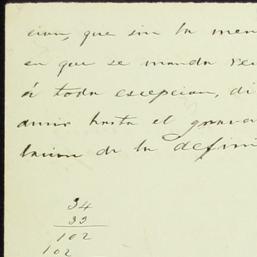 cion, que sin la men
en que se manda re
á toda escepcion, di
amir hasta el grava
lacion de la defini
34
33
102
102